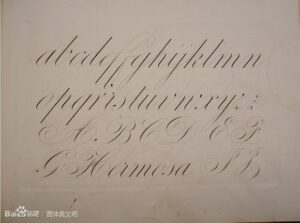 abcdefffghijklmn
opqrrstuvwxyz
A B C D E F
G Hermosa I L
Bai贴吧 | 圆体英文吧